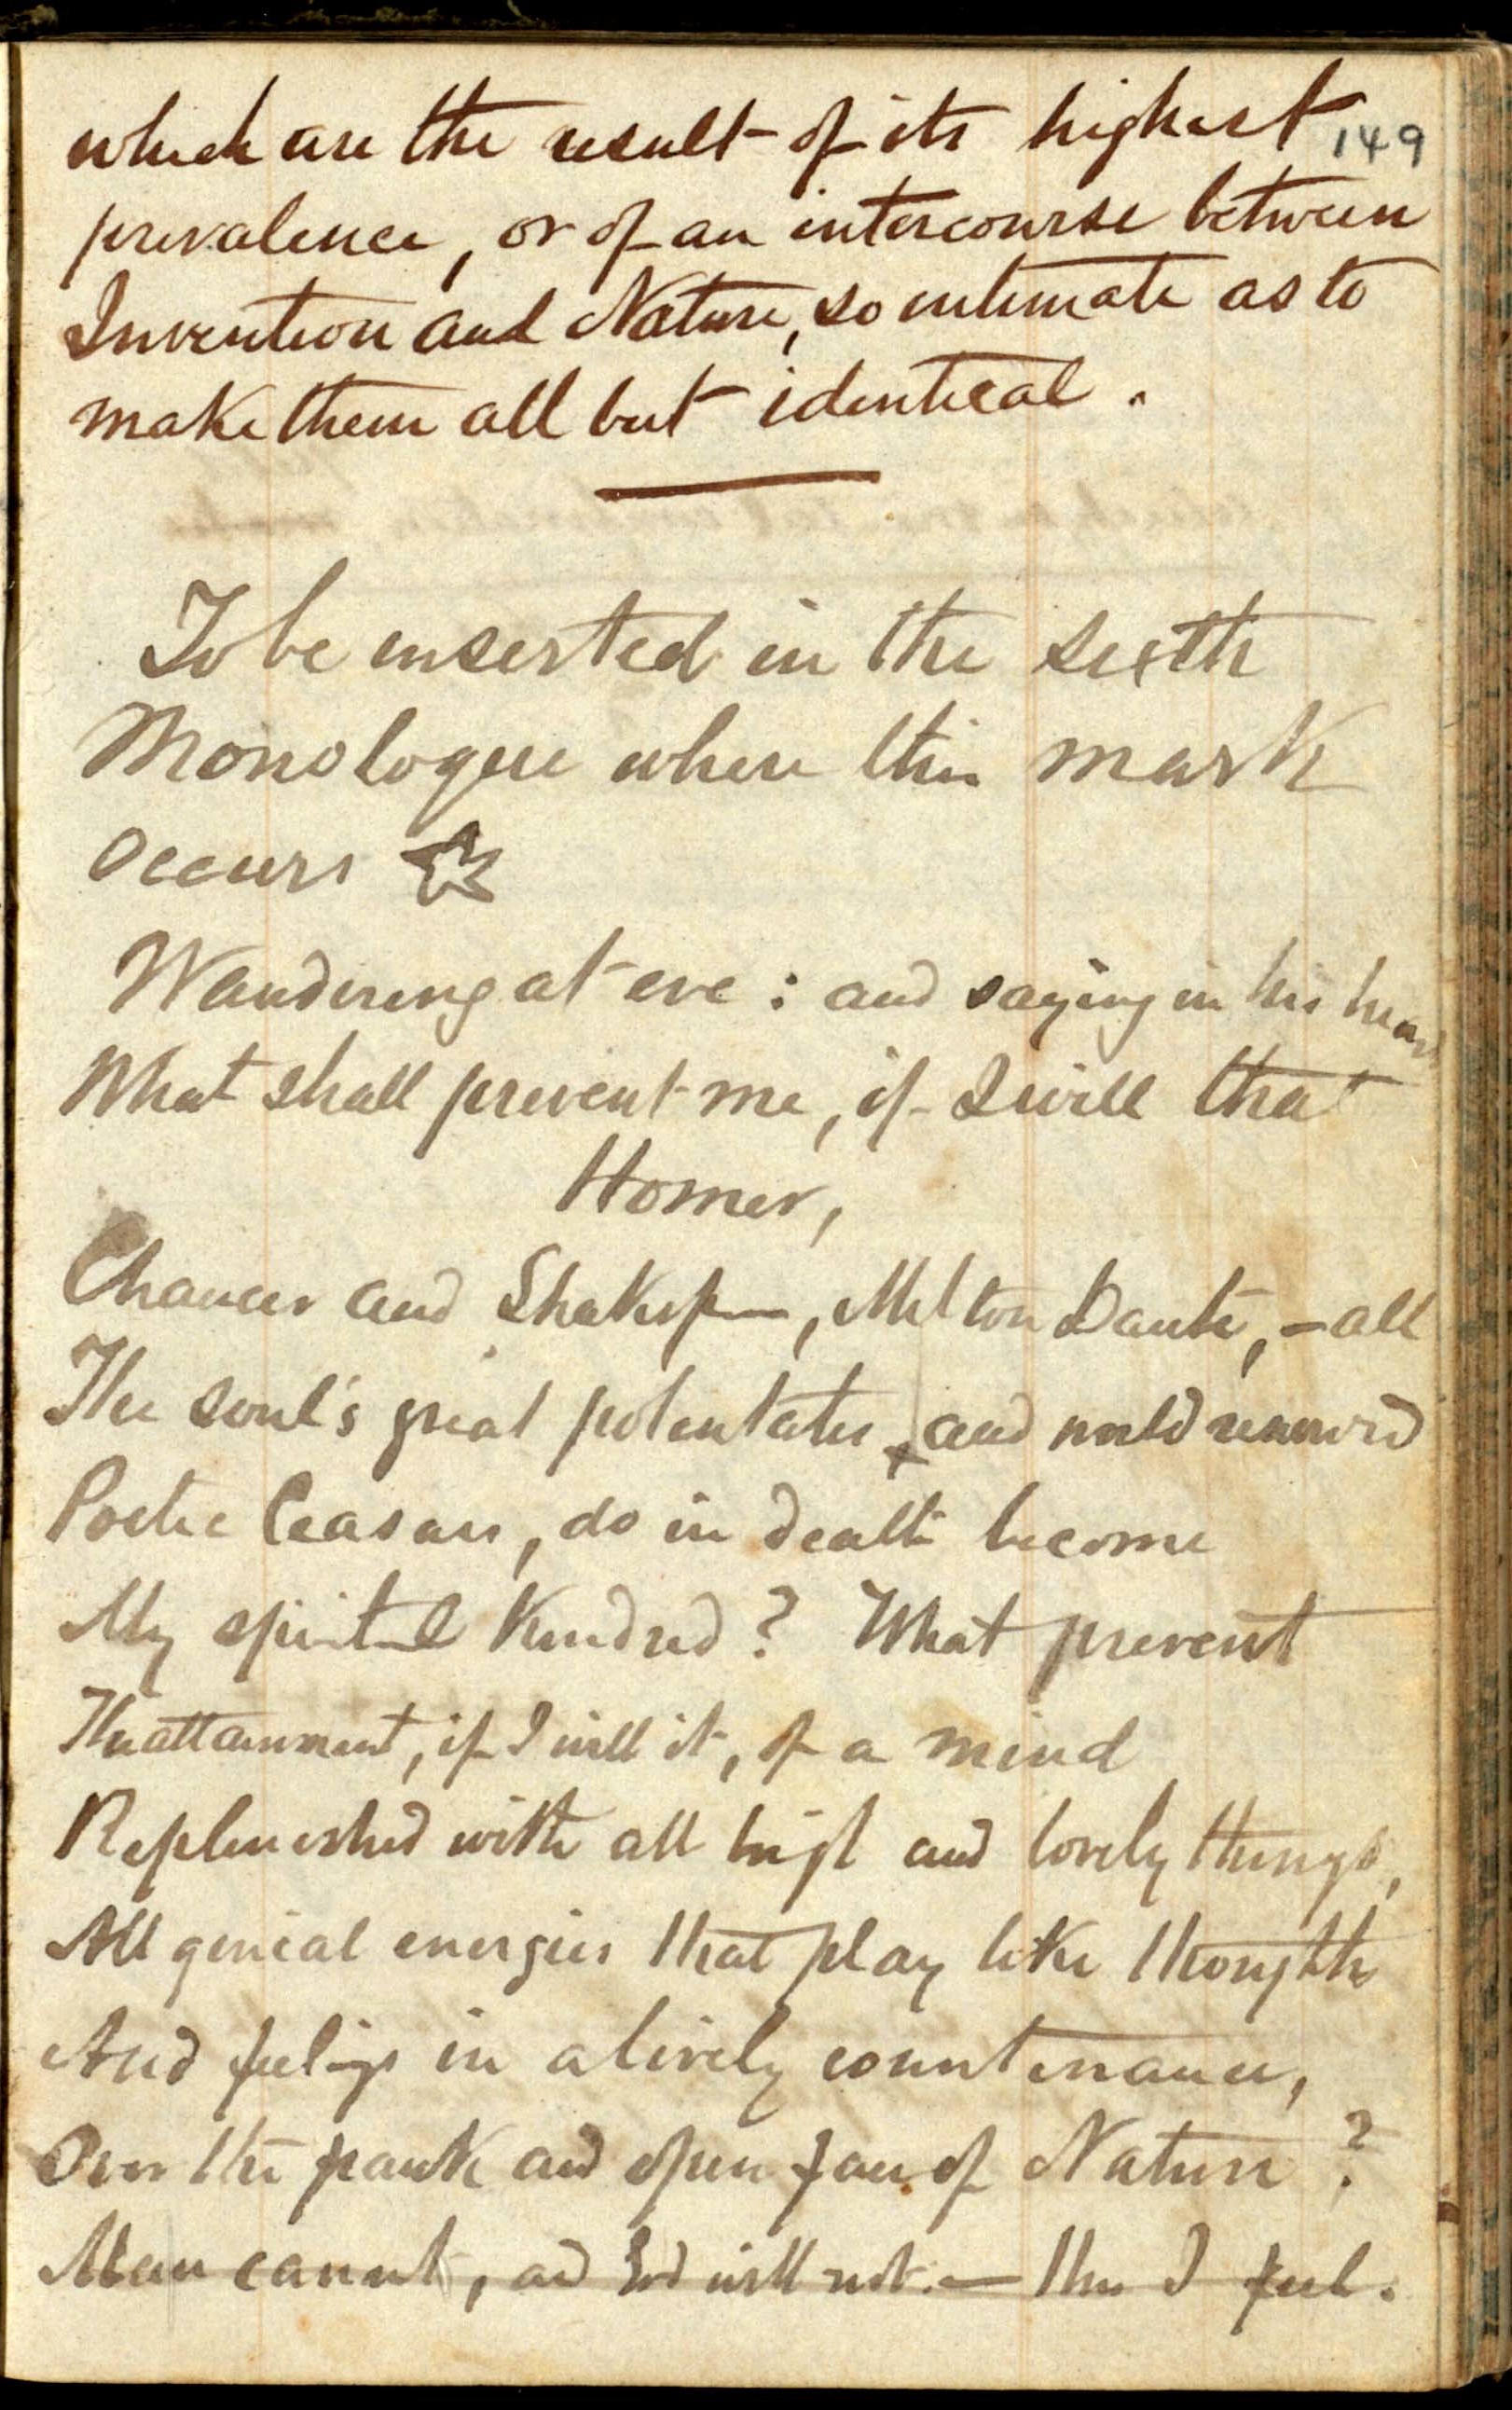 which are the result of its highest 149
prevalence, or of an intercourse between
Invention and Nature, so intimate as to
make them all but identical.
To be inserted in the sixth
Monologue where this mark
occurs
Wandering at eve: and saying in his heart
What shall prevent me, if I will that
Homer,
Chaucer and Shakesp—, Milton Dante, – all
The soul's great potentates, and world renown'd
Poetic Ceasars, do in death become
My spiritual Kindred? What prevent
The attainment, if I will it, of a mind
Replenished with all high and lovely things,
All genial energies that play like thoughts
And feelings in a lively countenance,
Over the frank and open face of Nature?
Man cannot, and God will not. — this I feel.